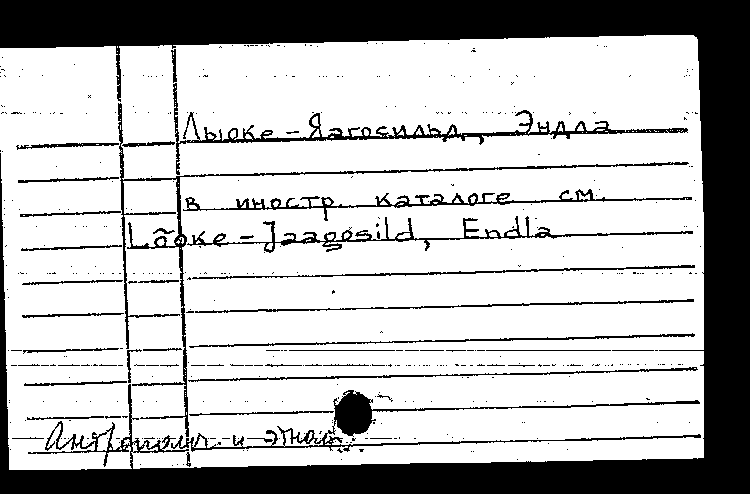 Лыоке-Яагосильд, Эндла
в иностр. каталоге см.
Lõoke-Jaagosild, Endla
Антрополог. и этног.